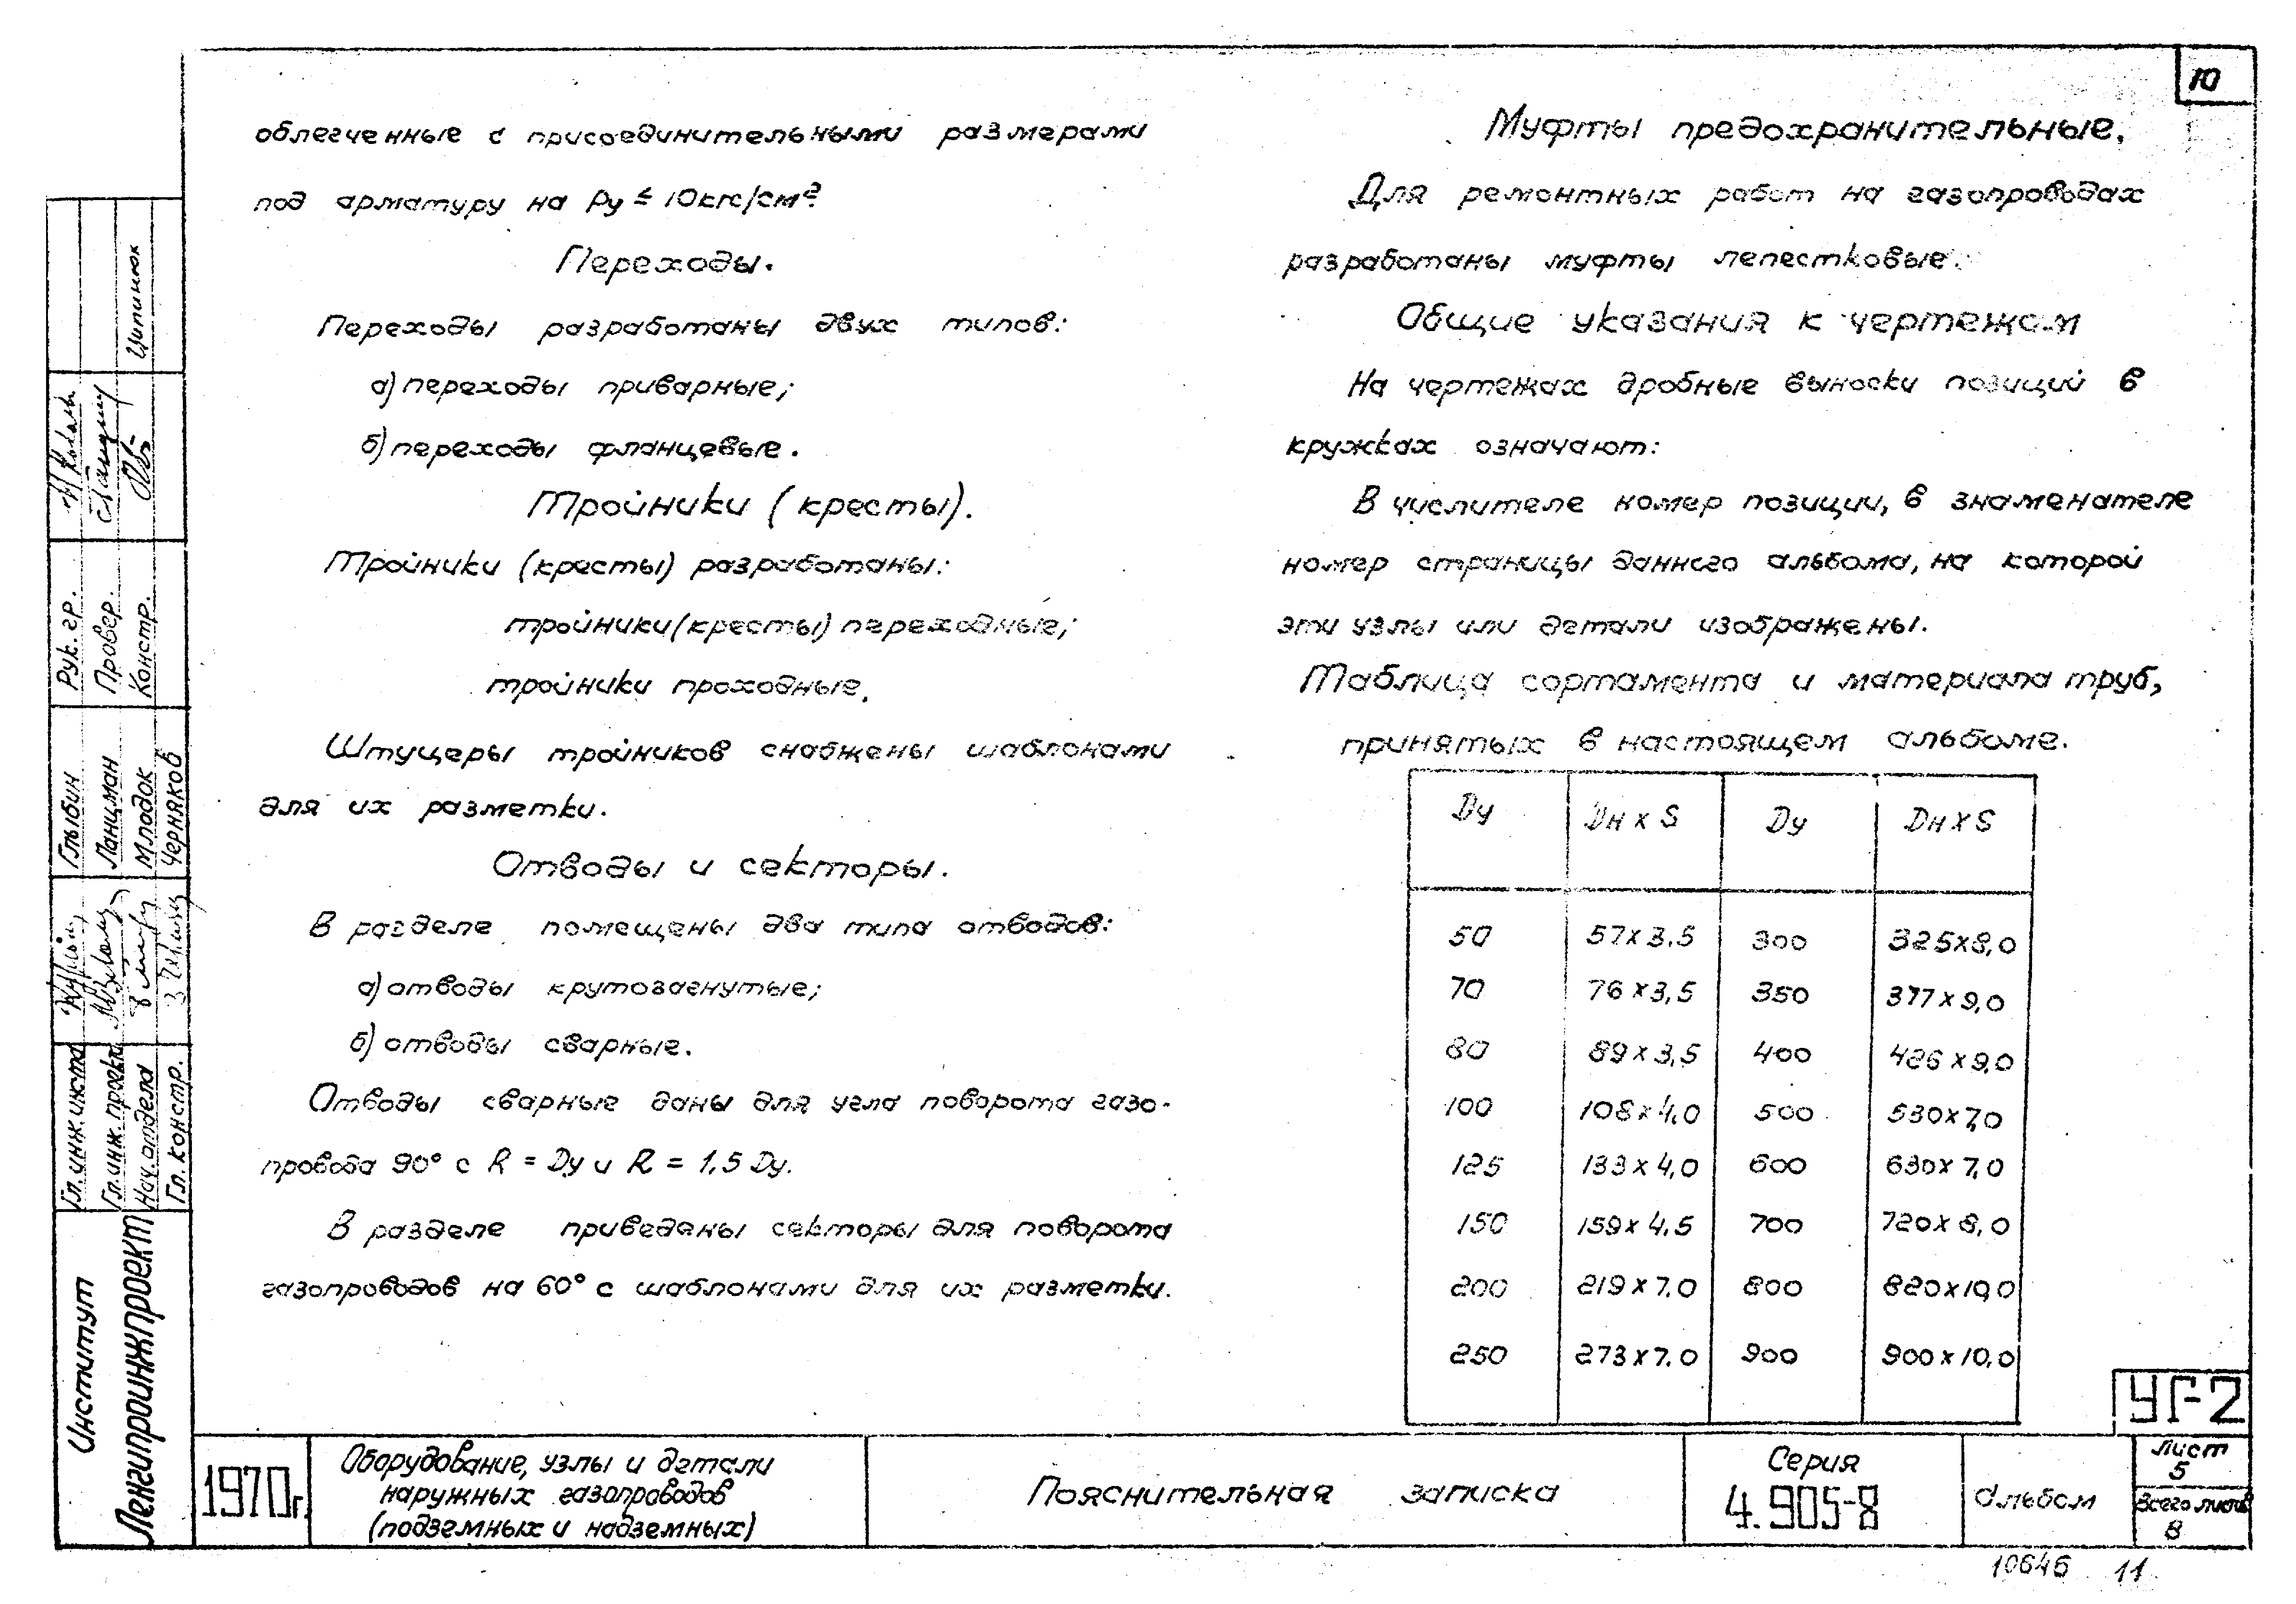 10
облегченные с присоединительными размерами
под арматуру на Ру ≤ 10кгс/см²
Переходы.
Переходы разработаны двух типов:
а) переходы приварные;
б) переходы фланцевые.
Тройники (кресты).
Тройники (кресты) разработаны:
тройники (кресты) переходные;
тройники проходные.
Штуцеры тройников снабжены шаблонами
для их разметки.
Отводы и секторы.
В разделе помещены два типа отводов:
а) отводы крутозагнутые;
б) отводы сварные.
Отводы сварные даны для угла поворота газо-
провода 90° с R = Ду и R = 1,5 Ду.
В разделе приведены секторы для поворота
газопроводов на 60° с шаблонами для их разметки.
Муфты предохранительные.
Для ремонтных работ на газопроводах
разработаны муфты лепестковые.
Общие указания к чертежам
На чертежах дробные выноски позиций в
кружках означают:
В числителе номер позиции, в знаменателе
номер страницы данного альбома, на которой
эти узлы или детали изображены.
Таблица сортамента и материала труб,
принятых в настоящем альбоме.
Ду Дн х S Ду Дн х S
50 57 х 3.5 300 325х8,0
70 76 х 3,5 350 377 х 9,0
80 89 х 3,5 400 426 х 9,0
100 108 х 4,0 500 530х7,0
125 133 х 4,0 600 630х 7,0
150 159 х 4,5 700 720х 8,0
200 219 х 7.0 800 820х10,0
250 273 х 7.0 900 900 х 10,0
УГ-2
Институт
Ленгипроинжпроект
Гл. инж. инста
Гл. инж. проекта
Нач. отдела
Гл. констр.
Глыбин
Ланцман
Млодок
Черняков
Рук. гр.
Провер.
Констр.
Ципинюк
1970г.
Оборудование, узлы и детали
наружных газопроводов
(подземных и надземных)
Пояснительная записка
Серия
4.905-8
Альбом
Лист
5
Всего листов
8
10646 11